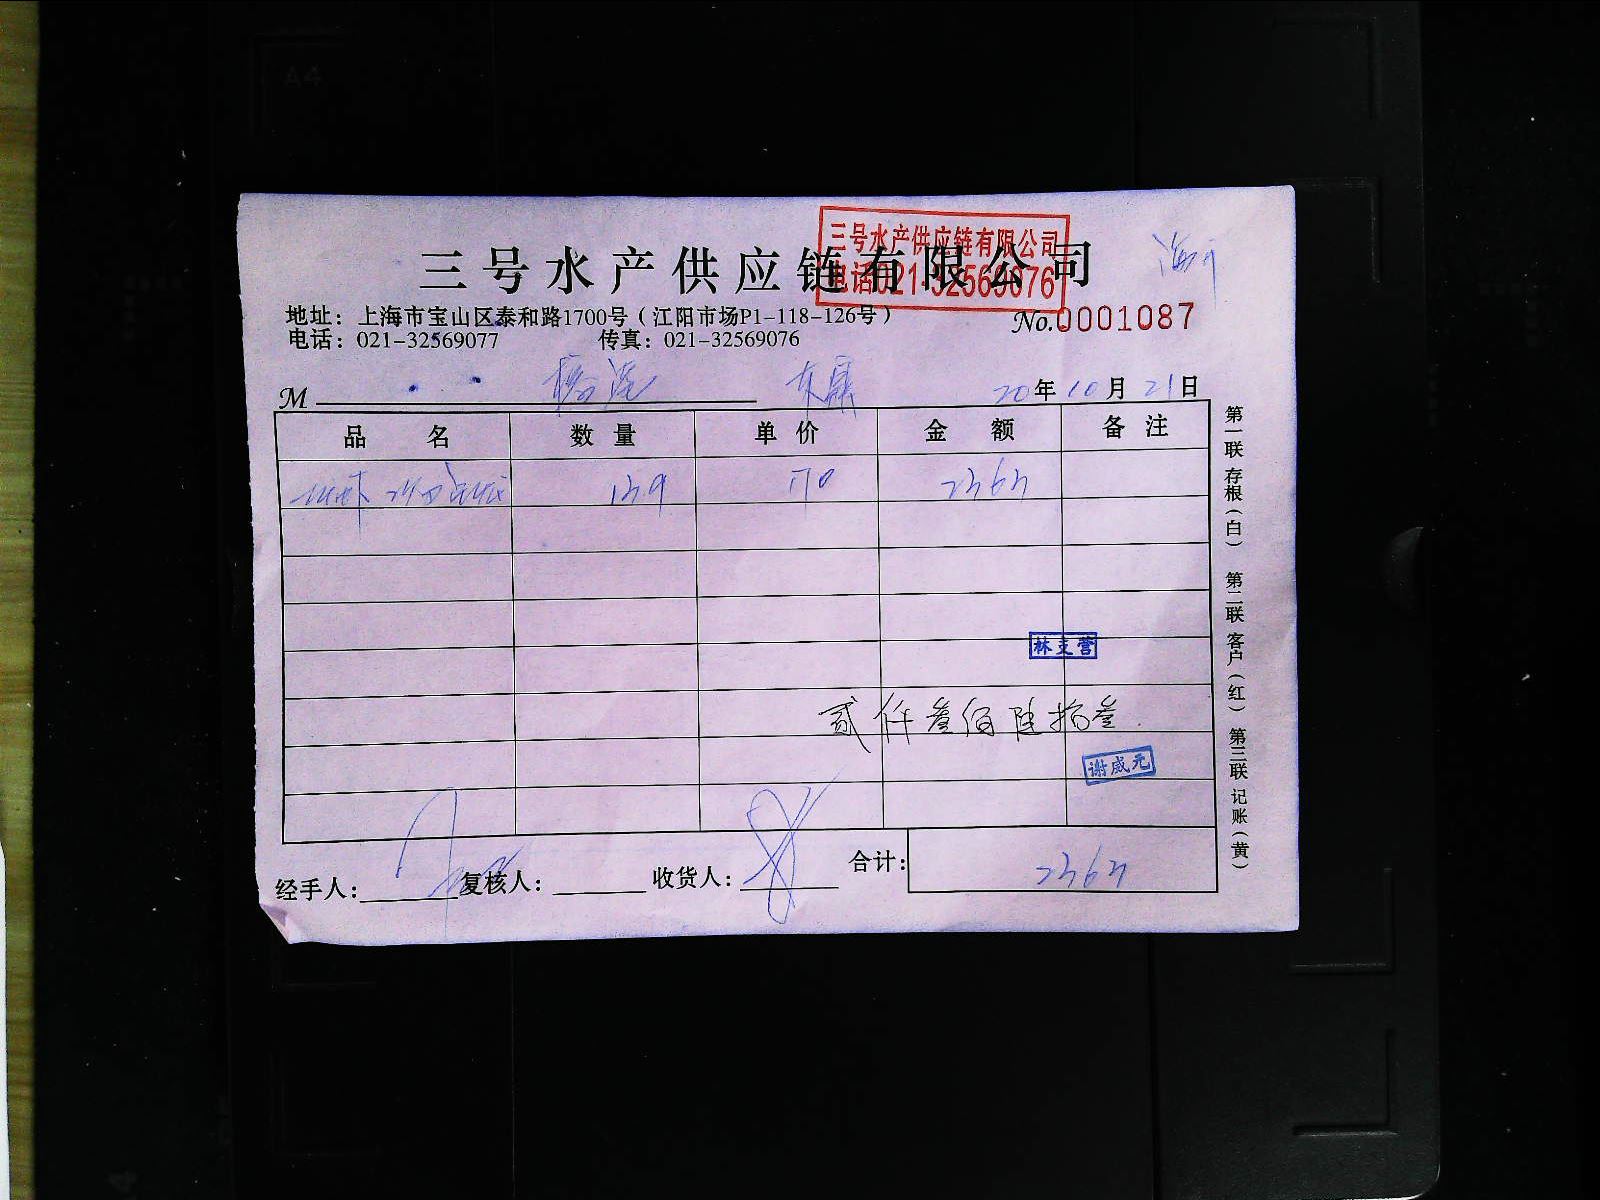 三号水产供应链有限公司
三号水产供应链有限公司
电话021-32569076
地址：上海市宝山区泰和路1700号（江阳市场P1-118-126号）
No.0001087
电话：021-32569077 传真：021-32569076
M 20年10月21日
品 名 数 量 单 价 金 额 备 注
13.9 170 2363
林支营
贰仟叁佰陆拾叁
谢威元
经手人： 复核人： 收货人： 合计：2363
第一联 存根（白） 第二联 客户（红） 第三联 记账（黄）